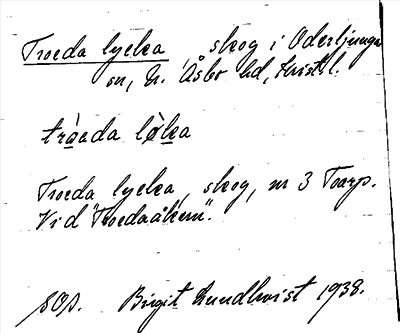 Troeda lycka skog i Oderljunga
sn, N. Åsbo hd, Kristl.
tròeda lø̀ka
Troeda lycka, skog, nr 3 Toarp.
Vid "Troedaåkern".
Birgit Lundkvist 1938.